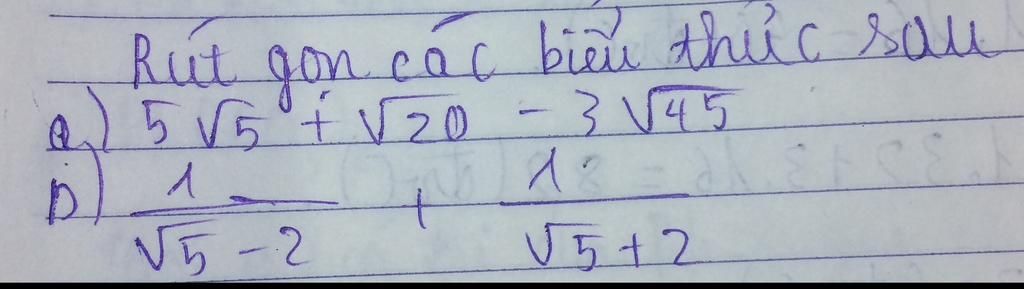 Rút gọn các biểu thức sau
a) 5√5 + √20 - 3√45
b) 1/(√5 - 2) + 1/(√5 + 2)